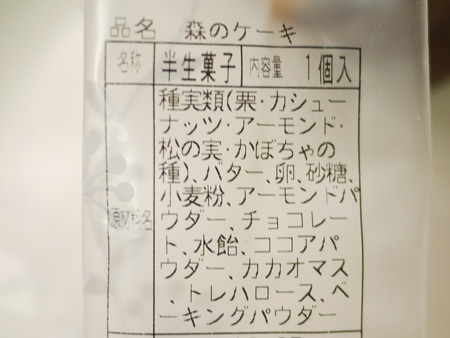 品名 森のケーキ
名称 半生菓子 内容量 1個入
種実類(栗・カシュー
ナッツ・アーモンド・
松の実・かぼちゃの
種)、バター、卵、砂糖、
小麦粉、アーモンドパ
原材料名 ウダー、チョコレー
ト、水飴、ココアパ
ウダー、カカオマス
、トレハロース、ベ
ーキングパウダー